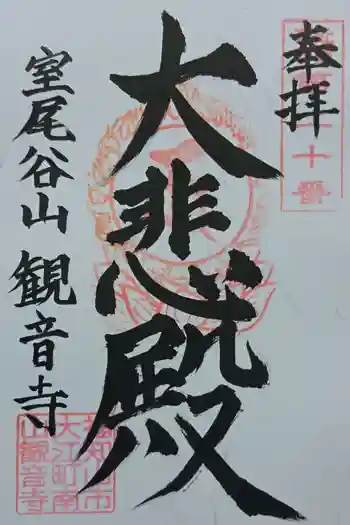 奉拝
大悲殿
室尾谷山観音寺
十番
福知山市
大江町南
山観音寺